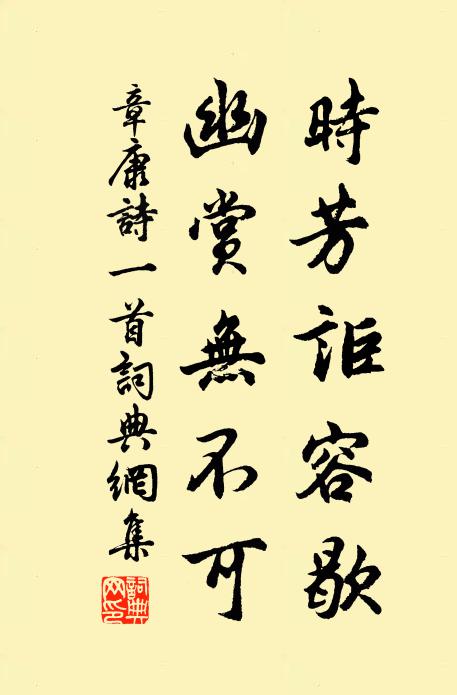 時芳詎容歇
幽賞無不可
章康詩一首詞典網集
詞典网印